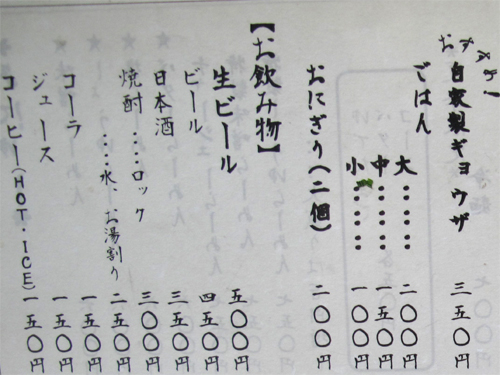 おすすめ!
自家製ギョウザ 三五〇円
ごはん
大……二〇〇円
中……一五〇円
小……一〇〇円
おにぎり(二個) 二〇〇円
【お飲み物】
生ビール 五〇〇円
ビール 四五〇円
日本酒 三五〇円
焼酎……ロック 三〇〇円
……水、お湯割り 二五〇円
コーラ 一五〇円
ジュース 一五〇円
コーヒー(HOT・ICE) 一五〇円